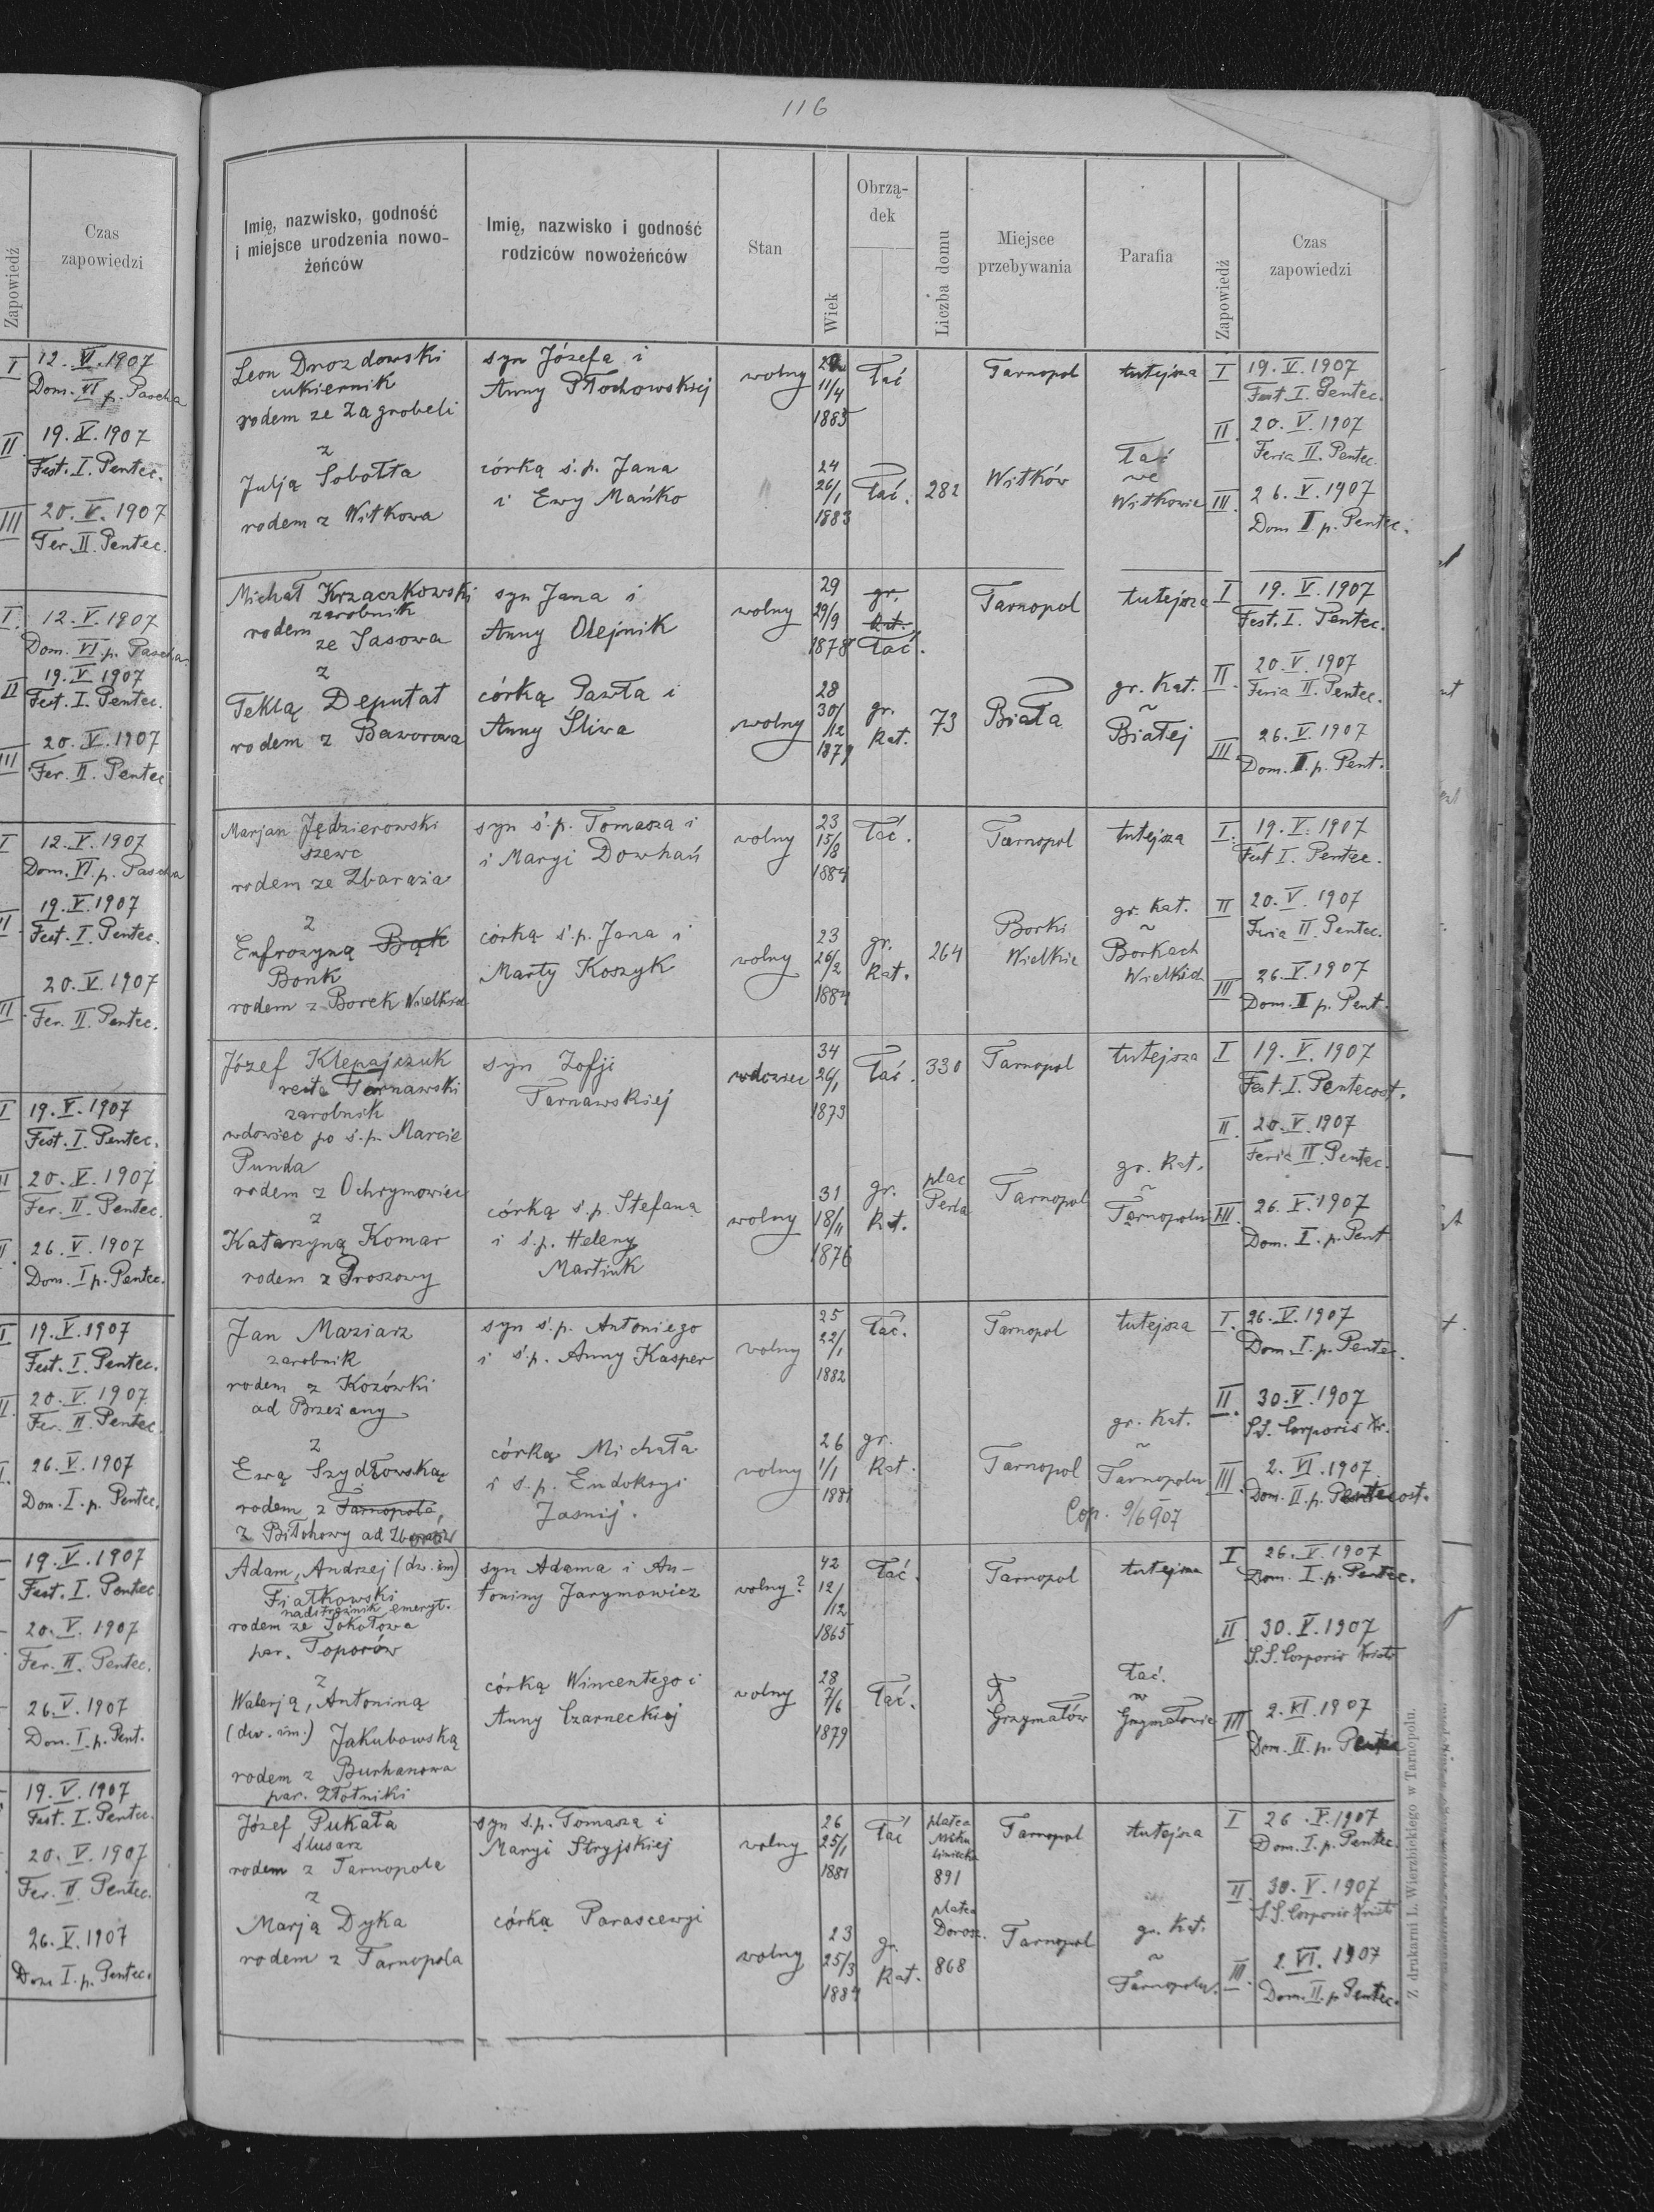 Zapowiedź
Czas
zapowiedzi
I
12. VI. 1907
Dom. VI p. Pascha
II
19. V. 1907
Fest. I. Pentec.
III
20. V. 1907
Fer. II. Pentec.
I.
12. V. 1907
Dom. VI. p. Pascha
II
19. V. 1907
Fest. I. Pentec.
III
20. V. 1907
Fer. II. Pentec
I
12. V. 1907
Dom. VI. p. Pascha
19. V. 1907
Fest. I. Pentec.
20. V. 1907
Fer. II. Pentec.
19. V. 1907
Fest. I. Pentec.
20. V. 1907
Fer. II. Pentec.
26. V. 1907
Dom. I p. Pentec.
19. V. 1907
Fest. I. Pentec.
20. V. 1907
Fer. II Pentec.
26. V. 1907
Dom. I. p. Pentec.
19. V. 1907
Fest. I. Pentec.
20. V. 1907
Fer. II. Pentec.
26. V. 1907
Dom. I. p. Pent.
19. V. 1907
Fest. I. Pentec.
20. V. 1907
Fer. II Pentec.
26. V. 1907
Dom I. p. Pentec.
116
Imię, nazwisko, godność
i miejsce urodzenia nowo-
żeńców
Imię, nazwisko i godność
rodziców nowożeńców
Stan
Wiek
Obrzą-
dek
Liczba domu
Miejsce
przebywania
Parafia
Zapowiedź
Czas
zapowiedzi
Leon Drozdowski
cukiernik
rodem ze Zagrobeli
syn Józefa i
Anny Płochowskiej
wolny
11/4
1885
łać
Tarnopol
tutejsza
I
19. V. 1907
Fest I. Pentec.
II.
20. V. 1907
Feria II. Pentec.
z
Julją Sobotta
rodem z Witkowa
córką ś.p. Jana
i Ewy Mańko
24
26/1
1883
łać.
282
Witków
łać
we
Witkowie
III.
26. V. 1907
Dom I. p. Pentec.
Michał Krzaczkowski
zarobnik
rodem
ze Sasowa
syn Jana i
Anny Olejnik
wolny
29
29/9
1878
gr.
kat.
łać.
Tarnopol
tutejsza
I
19. V. 1907
Fest. I. Pentec.
II.
20. V. 1907
Feria II. Pentec.
z
Teklą Deputat
rodem z Baworowa
córką Pawła i
Anny Śliwa
wolny
28
30/12
1879
gr.
kat.
73
Biała
gr. kat.
~
Białej
III.
26. V. 1907
Dom. I. p. Pent.
Marjan Jędzierowski
szewc
rodem ze Zbaraża
syn ś.p. Tomasza i
i Maryi Dowhań
wolny
23
15/8
1884
łać.
Tarnopol
tutejsza
I.
19. V. 1907
Fest I. Pentec.
II
20. V. 1907
Feria II. Pentec.
z
Eufrozyną Bąk
Bonk
rodem z Borek Wielkich
córką ś.p. Jana i
Marty Koszyk
wolny
23
26/2
1884
gr.
kat.
264
Borki
Wielkie
gr. kat.
~
Borkach
Wielkich
III
26. V. 1907
Dom. I p. Pent.
Józef Klepajczuk
recte Tarnawski
zarobnik
wdowiec po ś.p. Marcie
Punda
rodem z Ochrymowiec
syn Zofji
Tarnawskiej
wdowiec
34
26/1
1873
łać.
330
Tarnopol
tutejsza
I
19. V. 1907
Fest. I. Pentecost.
II.
20. V. 1907
Feria II. Pentec.
z
Katarzyną Komar
rodem z Proszowy
córką ś.p. Stefana
i ś.p. Heleny
Martiuk
wolny
31
18/11
1876
gr.
kat.
plac
Perla
Tarnopol
gr. kat.
~
Tarnopolu
III.
26. V. 1907
Dom. I. p. Pent
Jan Maziarz
zarobnik
rodem z Kozówki
ad Brzeżany
syn ś.p. Antoniego
i ś.p. Anny Kasper
wolny
25
22/1
1882
łać.
Tarnopol
tutejsza
I.
26. V. 1907
Dom. I. p. Pentec.
II.
30. V. 1907
S.S. Corporis Xr.
z
Ewą Szydłowską
rodem z Tarnopola,
z Bitchowy ad Zborów
córką Michała
i ś.p. Eudoksyi
Jasnij.
wolny
26
1/1
1881
gr.
kat.
Tarnopol
gr. kat.
~
Tarnopolu
III.
2. VI. 1907
Dom. II. p. Pentecost.
Cop. 9/6 907
Adam, Andrzej (dw. im)
Fiałkowski
nadstrażnik emeryt.
rodem ze Sokołowa
par. Toporów
syn Adama i An-
toniny Jarymowicz
wolny?
42
12/12
1865
łać.
Tarnopol
tutejsza
I
26. V. 1907
Dom. I. p. Pentec.
II
30. V. 1907
S.S. Corporis Xristi
z
Walerją, Antoniną
(dw. im.) Jakubowską
rodem z Burkanowa
par. Złotniki
córką Wincentego i
Anny Czarneckiej
wolny
28
7/6
1879
łać.
Grzymałów
łać.
w
Grzymałowie
III
2. VI. 1907
Dom. II. p. Pentec
Józef Pukała
ślusarz
rodem z Tarnopola
syn ś.p. Tomasza i
Maryi Stryjskiej
wolny
26
25/1
1881
łać
platea
Miku
liniecka
891
Tarnopol
tutejsza
I
26. V. 1907
Dom. I. p. Pentec.
II.
30. V. 1907
S.S. Corporis Xristi
z
Marją Dyka
rodem z Tarnopola
córką Parascewji
wolny
23
25/3
1884
gr.
kat.
platea
Dorosz.
868
Tarnopol
gr. kat.
~
Tarnopolu.
III.
2. VI. 1907
Dom. II. p Pentec.
Z drukarni L. Wierzbickiego w Tarnopolu.